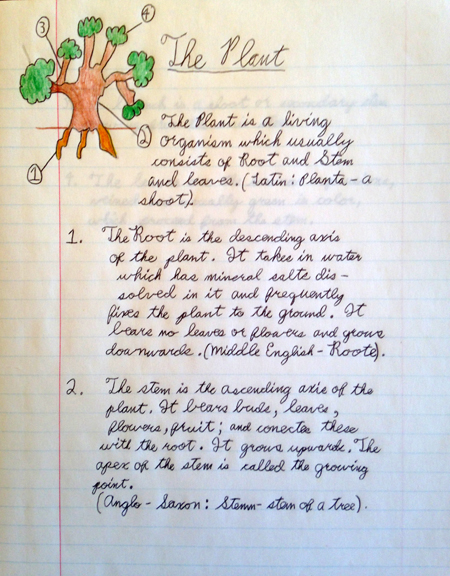 4
3
The Plant
The Plant is a living
2
organism which usually
consists of Root and Stem
1
and leaves. (Latin: Planta - a
shoot).
1. The Root is the descending axis
of the plant. It takes in water
which has mineral salts dis-
solved in it and frequently
fixes the plant to the ground. It
bears no leaves or flowers and grows
downwards. (Middle English - Roote).
2. The stem is the ascending axis of the
plant. It bears buds, leaves,
flowers, fruit; and conectes these
with the root. It grows upwards. The
apex of the stem is called the growing
point.
(Anglo - Saxon: Stemn - stem of a tree).